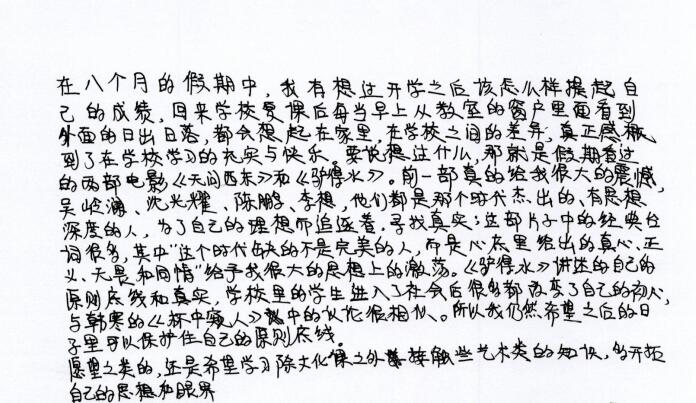 在八个月的假期中，我有想过开学之后该怎么样提起自
己的成绩，回来学校复课后每当早上从教室的窗户里面看到
外面的日出日落，都会想起在家里，在学校之间的差异，真正感概
到了在学校学习的充实与快乐。要说想过什么，那就是假期看过
的两部电影《无问西东》和《驴得水》。前一部真的给我很大的震憾，
吴岭澜、沈光耀、陈鹏、李想，他们都是那个时代杰出的、有思想
深度的人，为了自己的理想而追逐着，寻找真实；这部片子中的经典台
词很多，其中"这个时代缺的不是完美的人，而是心底里给出的真心、正
义、无畏和同情"给予我很大的思想上的激荡。《驴得水》讲述的自己的
原则底线和真实，学校里的学生进入了社会后很多都改变了自己的初心，
与韩寒的《杯中窥人》中的议论很相似。所以我仍然希望之后的日
子里可以保护住自己的原则底线。
愿望之类的，还是希望学习除文化课之外接触些艺术类的知识，多开拓
自己的思想和眼界